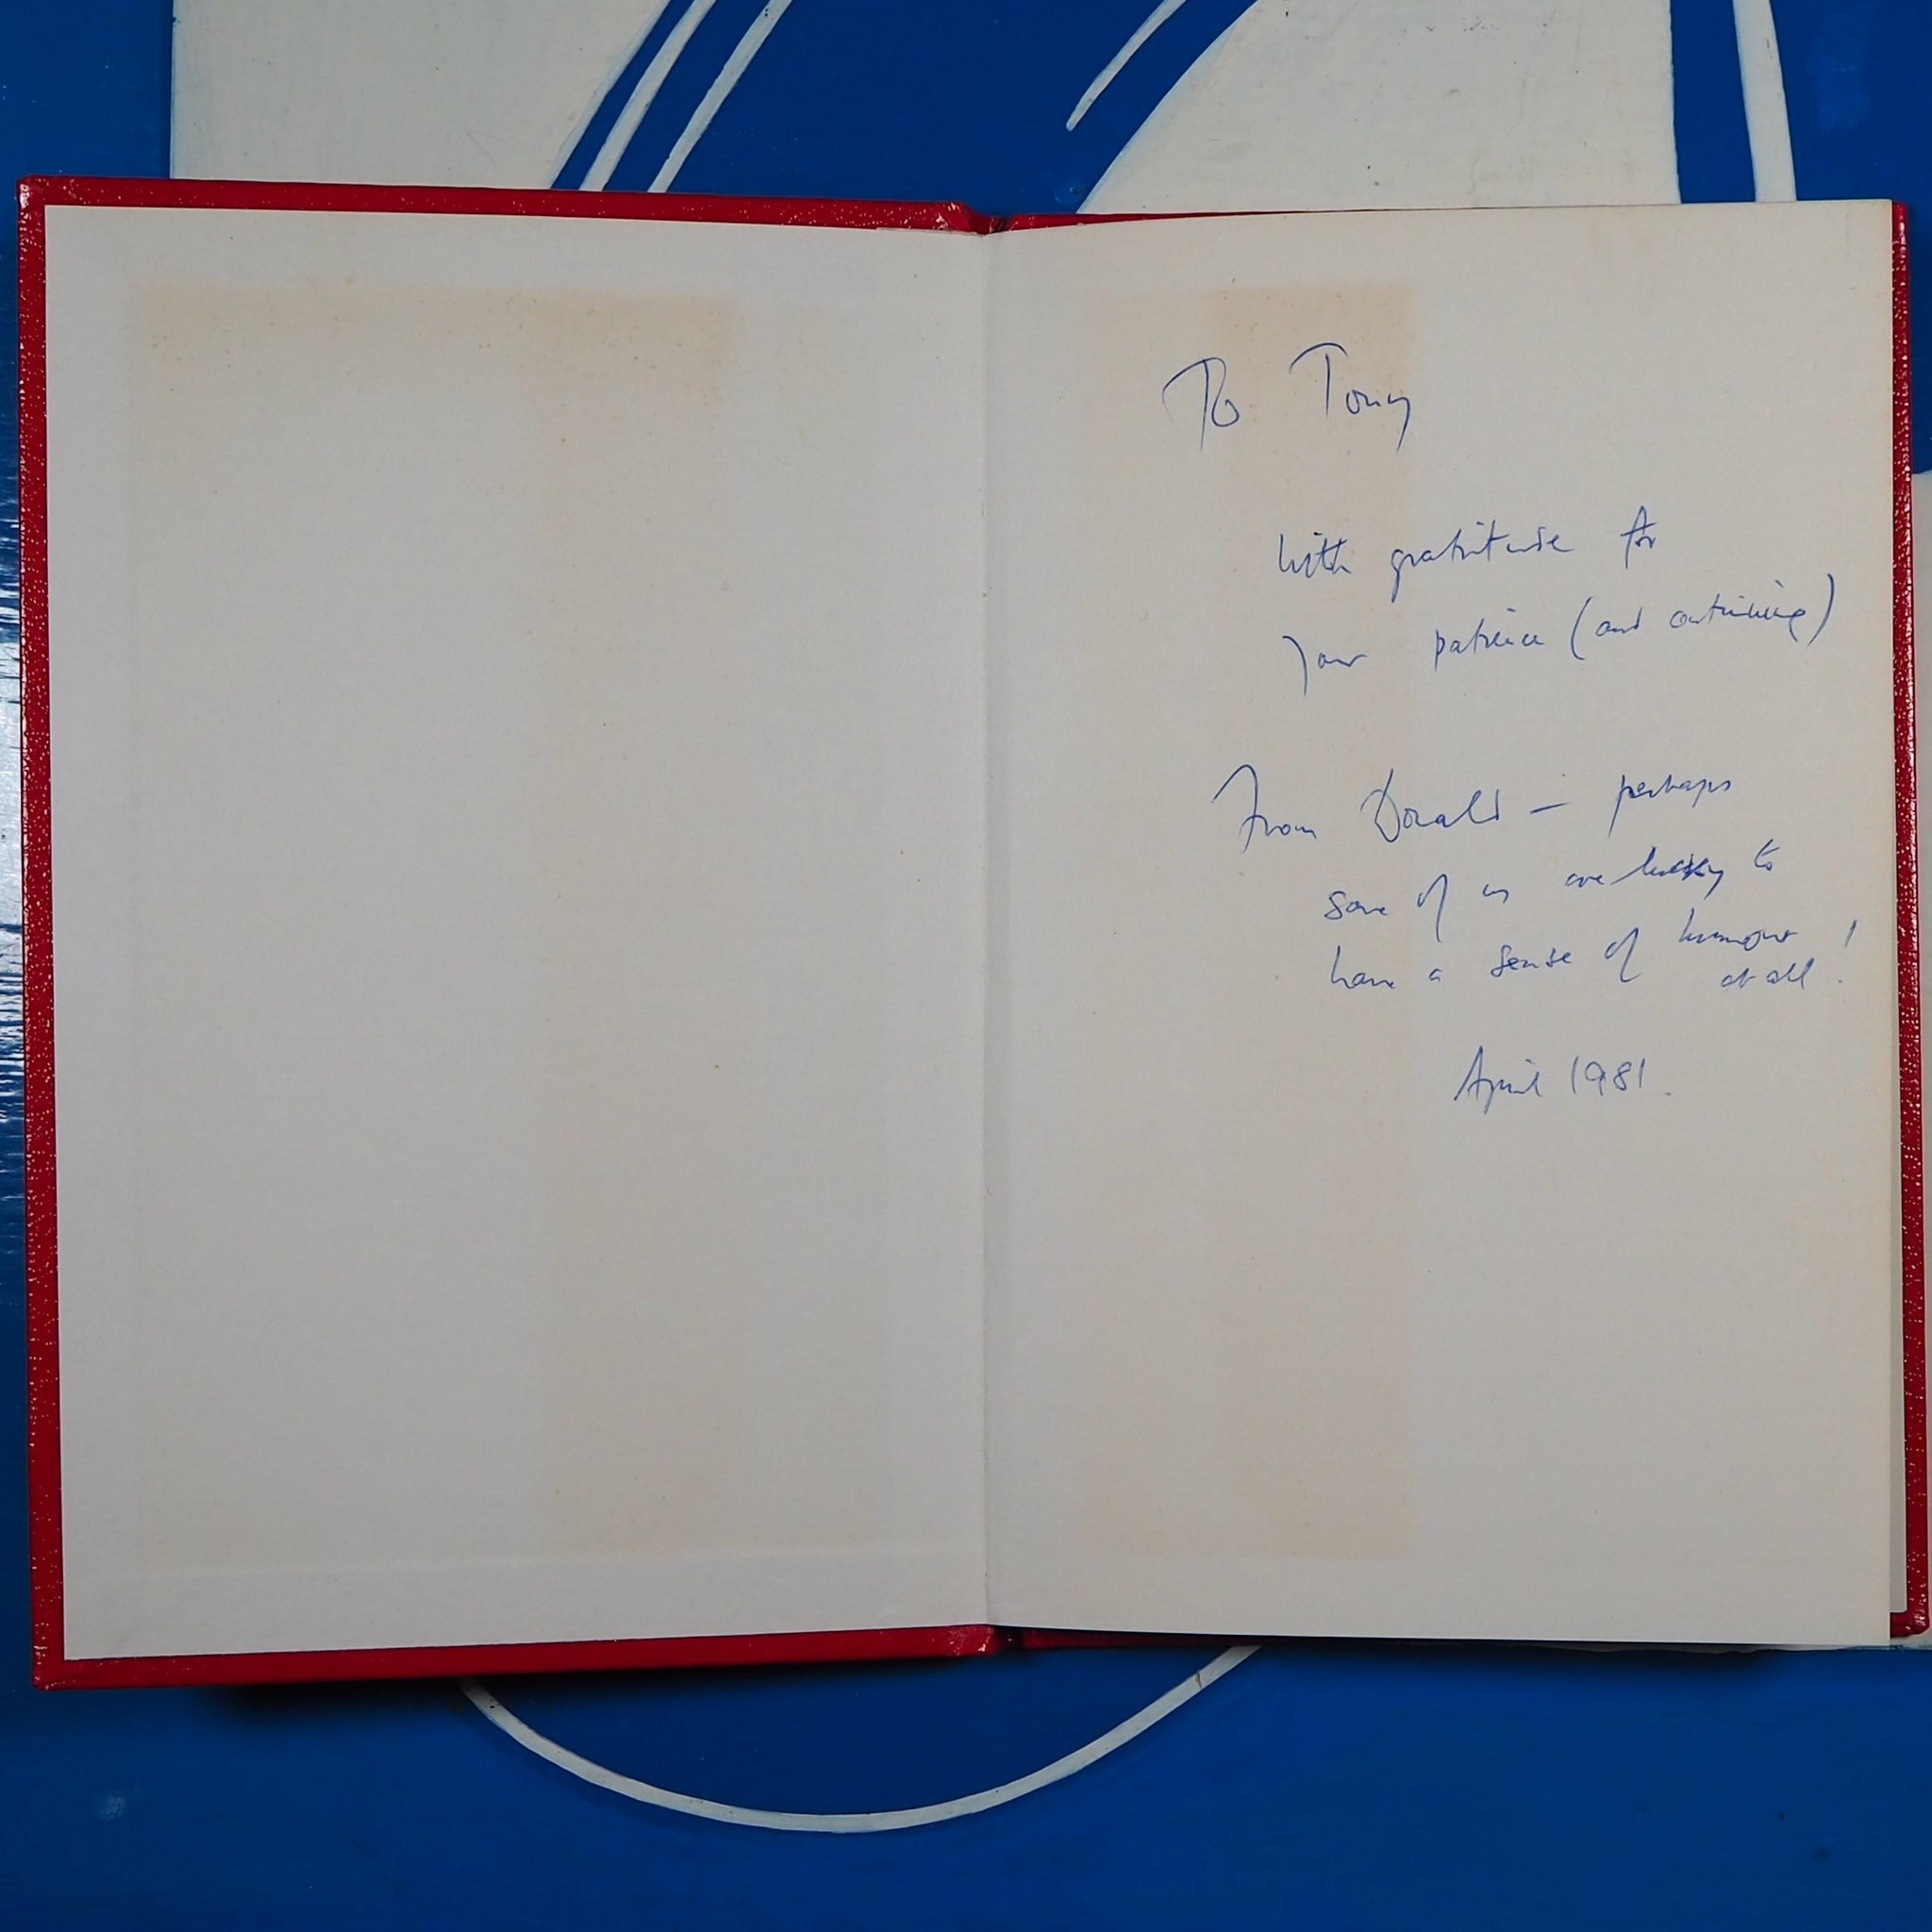 To Tony
With gratitude for
your patience (and continuing)
From Donald — perhaps
some of us are lucky to
have a sense of humour !
at all !
April 1981.